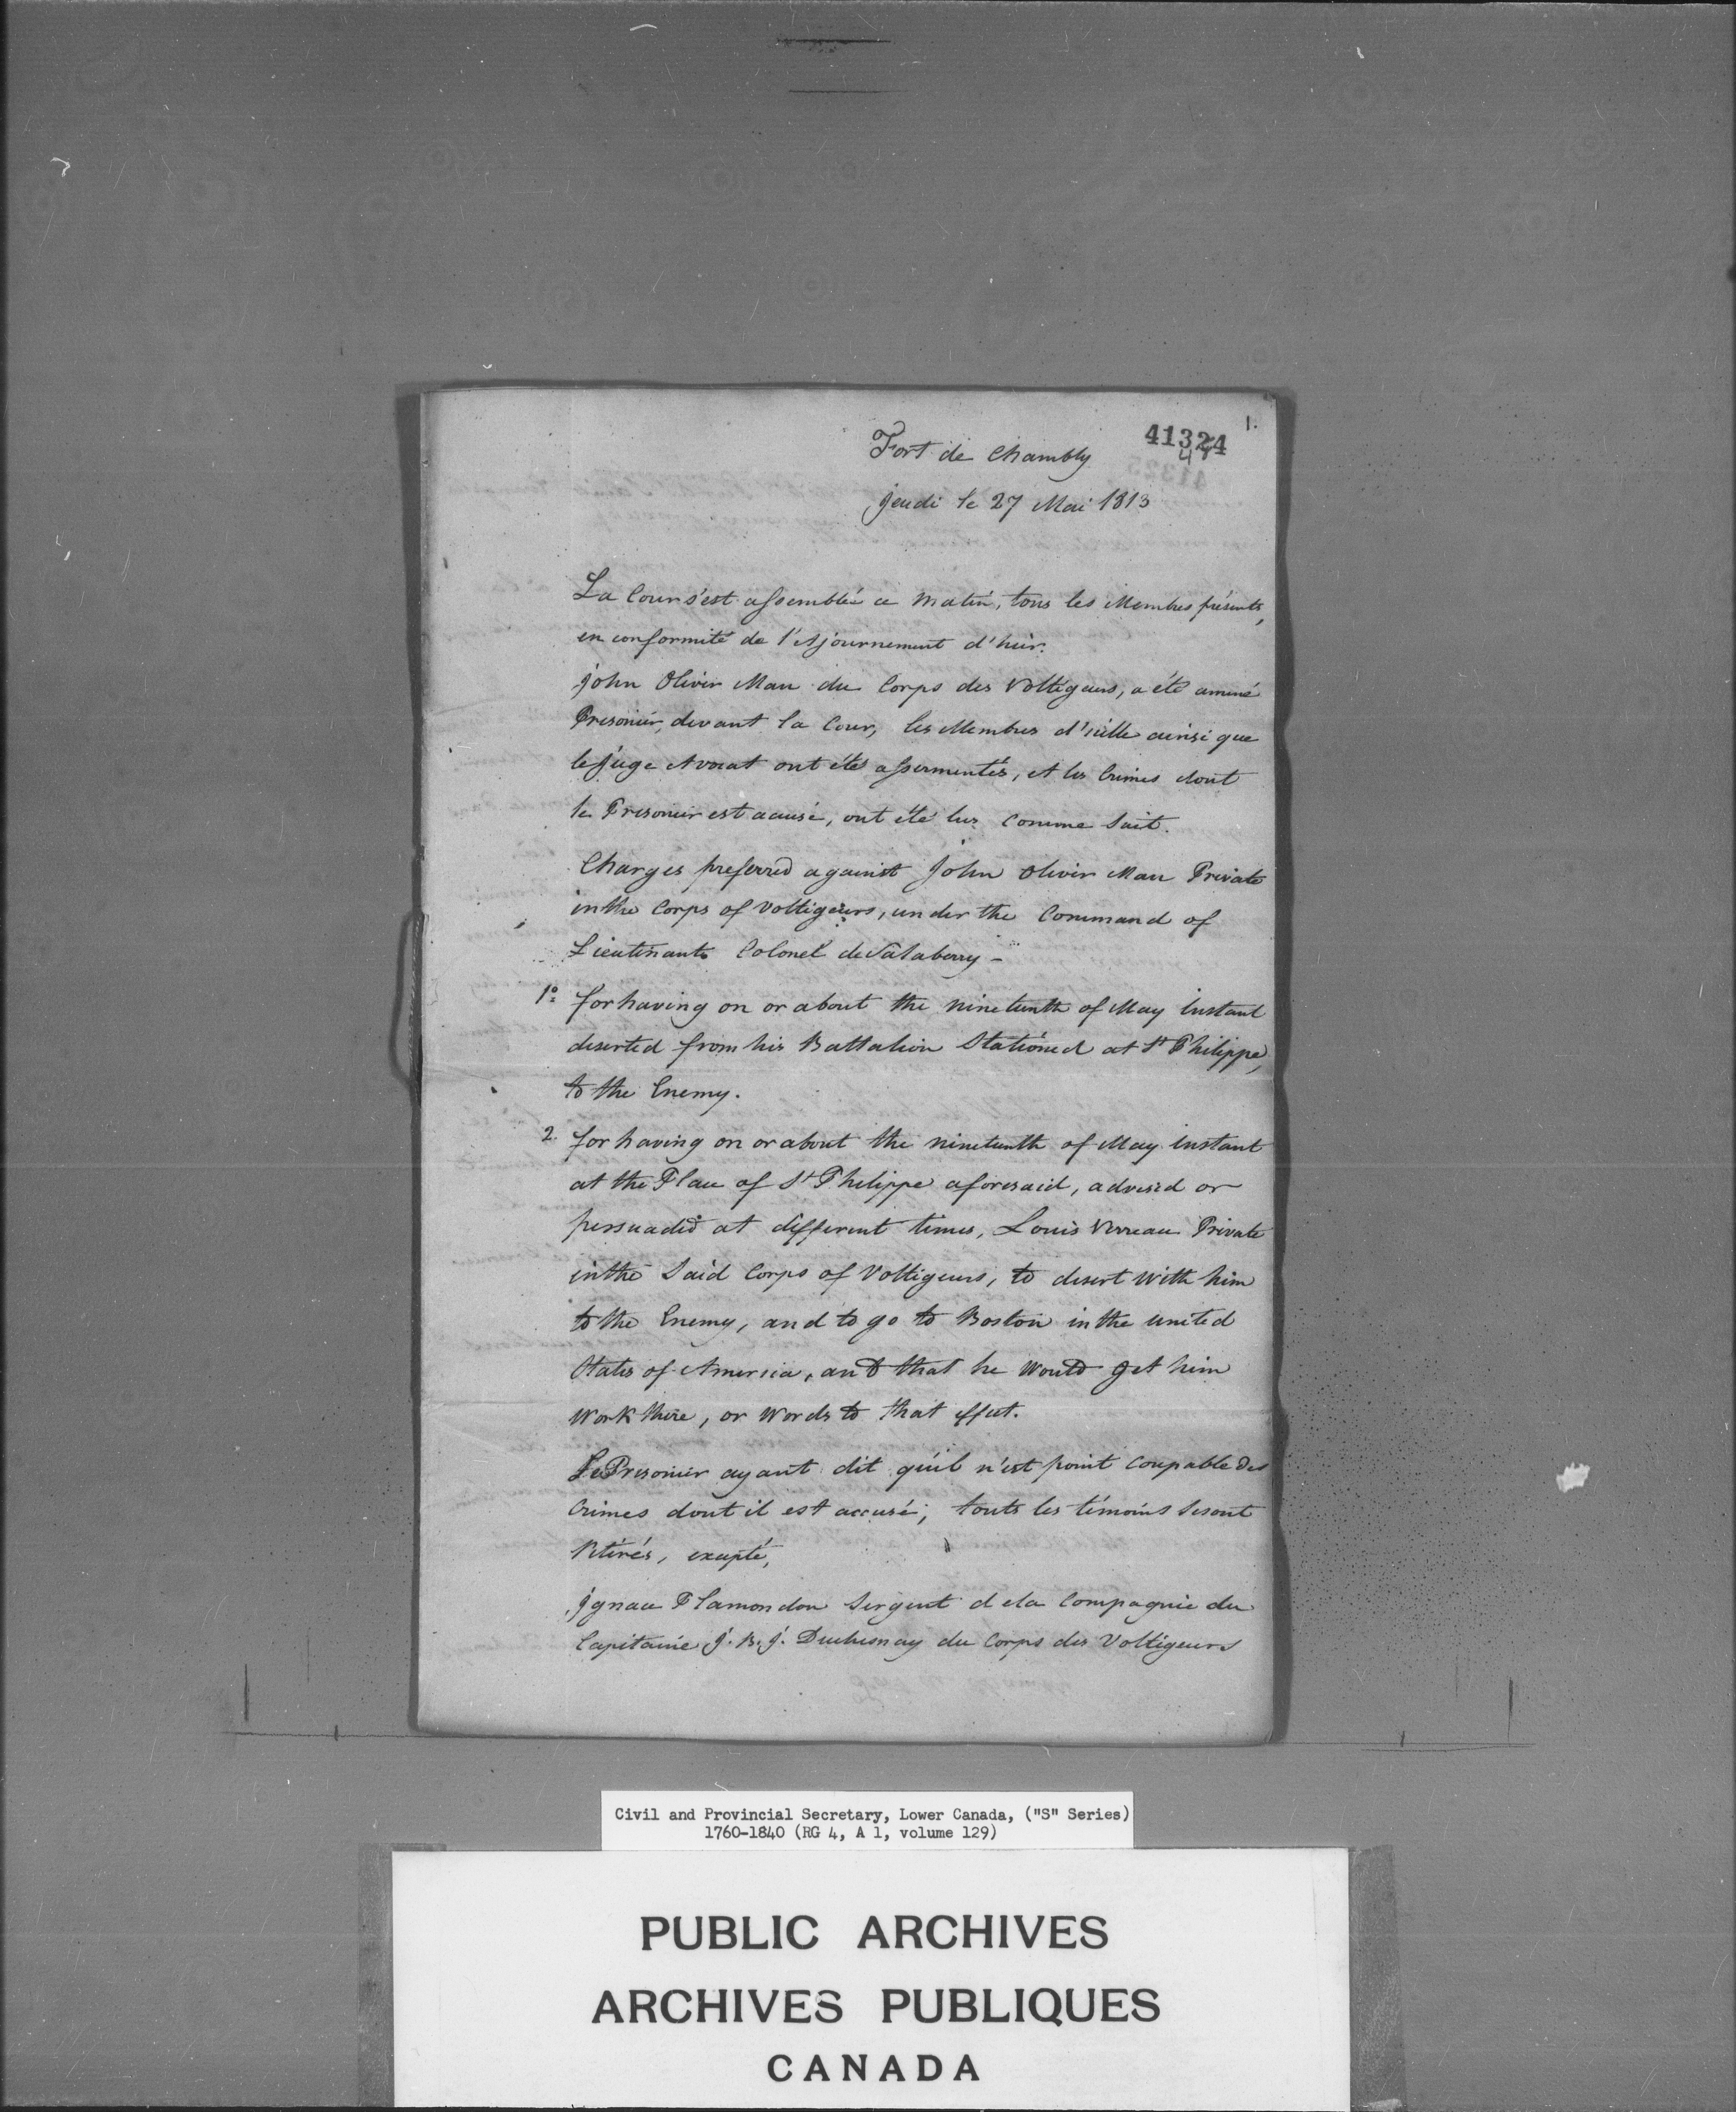 1.
41324
47
Fort de Chambly
Jeudi le 27 Mai 1813
La Cour s'est assemblée ce Matin, tous les Membres présents,
en conformité de l'Ajournement d'hier.
John Oliver Man du Corps des Voltigeurs, a été amené
Prisonier, devant la Cour, les Membres d'icelle ainsi que
le Juge Avocat ont étés assermentés, et les Crimes dont
le Prisonier est accusé, ont été lus Comme Suit.
Charges preferred against John Oliver Man Private
in the Corps of Voltigeurs, under the Command of
Lieutenant Colonel de Salaberry -
1º for having on or about the nineteenth of May Instant
deserted from his Battalion Stationed at St Philippe,
to the Enemy.
2. for having on or about the nineteenth of May Instant
at the Place of St Philippe aforesaid, advised or
persuaded at different times, Louis Verreau Private
in the Said Corps of Voltigeurs, to desert with him
to the Enemy, and to go to Boston in the United
States of America, and that he would get him
Work there, or Words to that effect.
Le Prisonier ayant dit qu'il n'est point Coupable des
Crimes dont il est accusé, touts les témoins se sont
Retirés, excepté,
Ignace Plamondon Sergent de la Compagnie du
Capitaine J. B. J. Duchesnay du Corps des Voltigeurs
Civil and Provincial Secretary, Lower Canada, ("S" Series)
1760-1840 (RG 4, A 1, volume 129)
PUBLIC ARCHIVES
ARCHIVES PUBLIQUES
CANADA